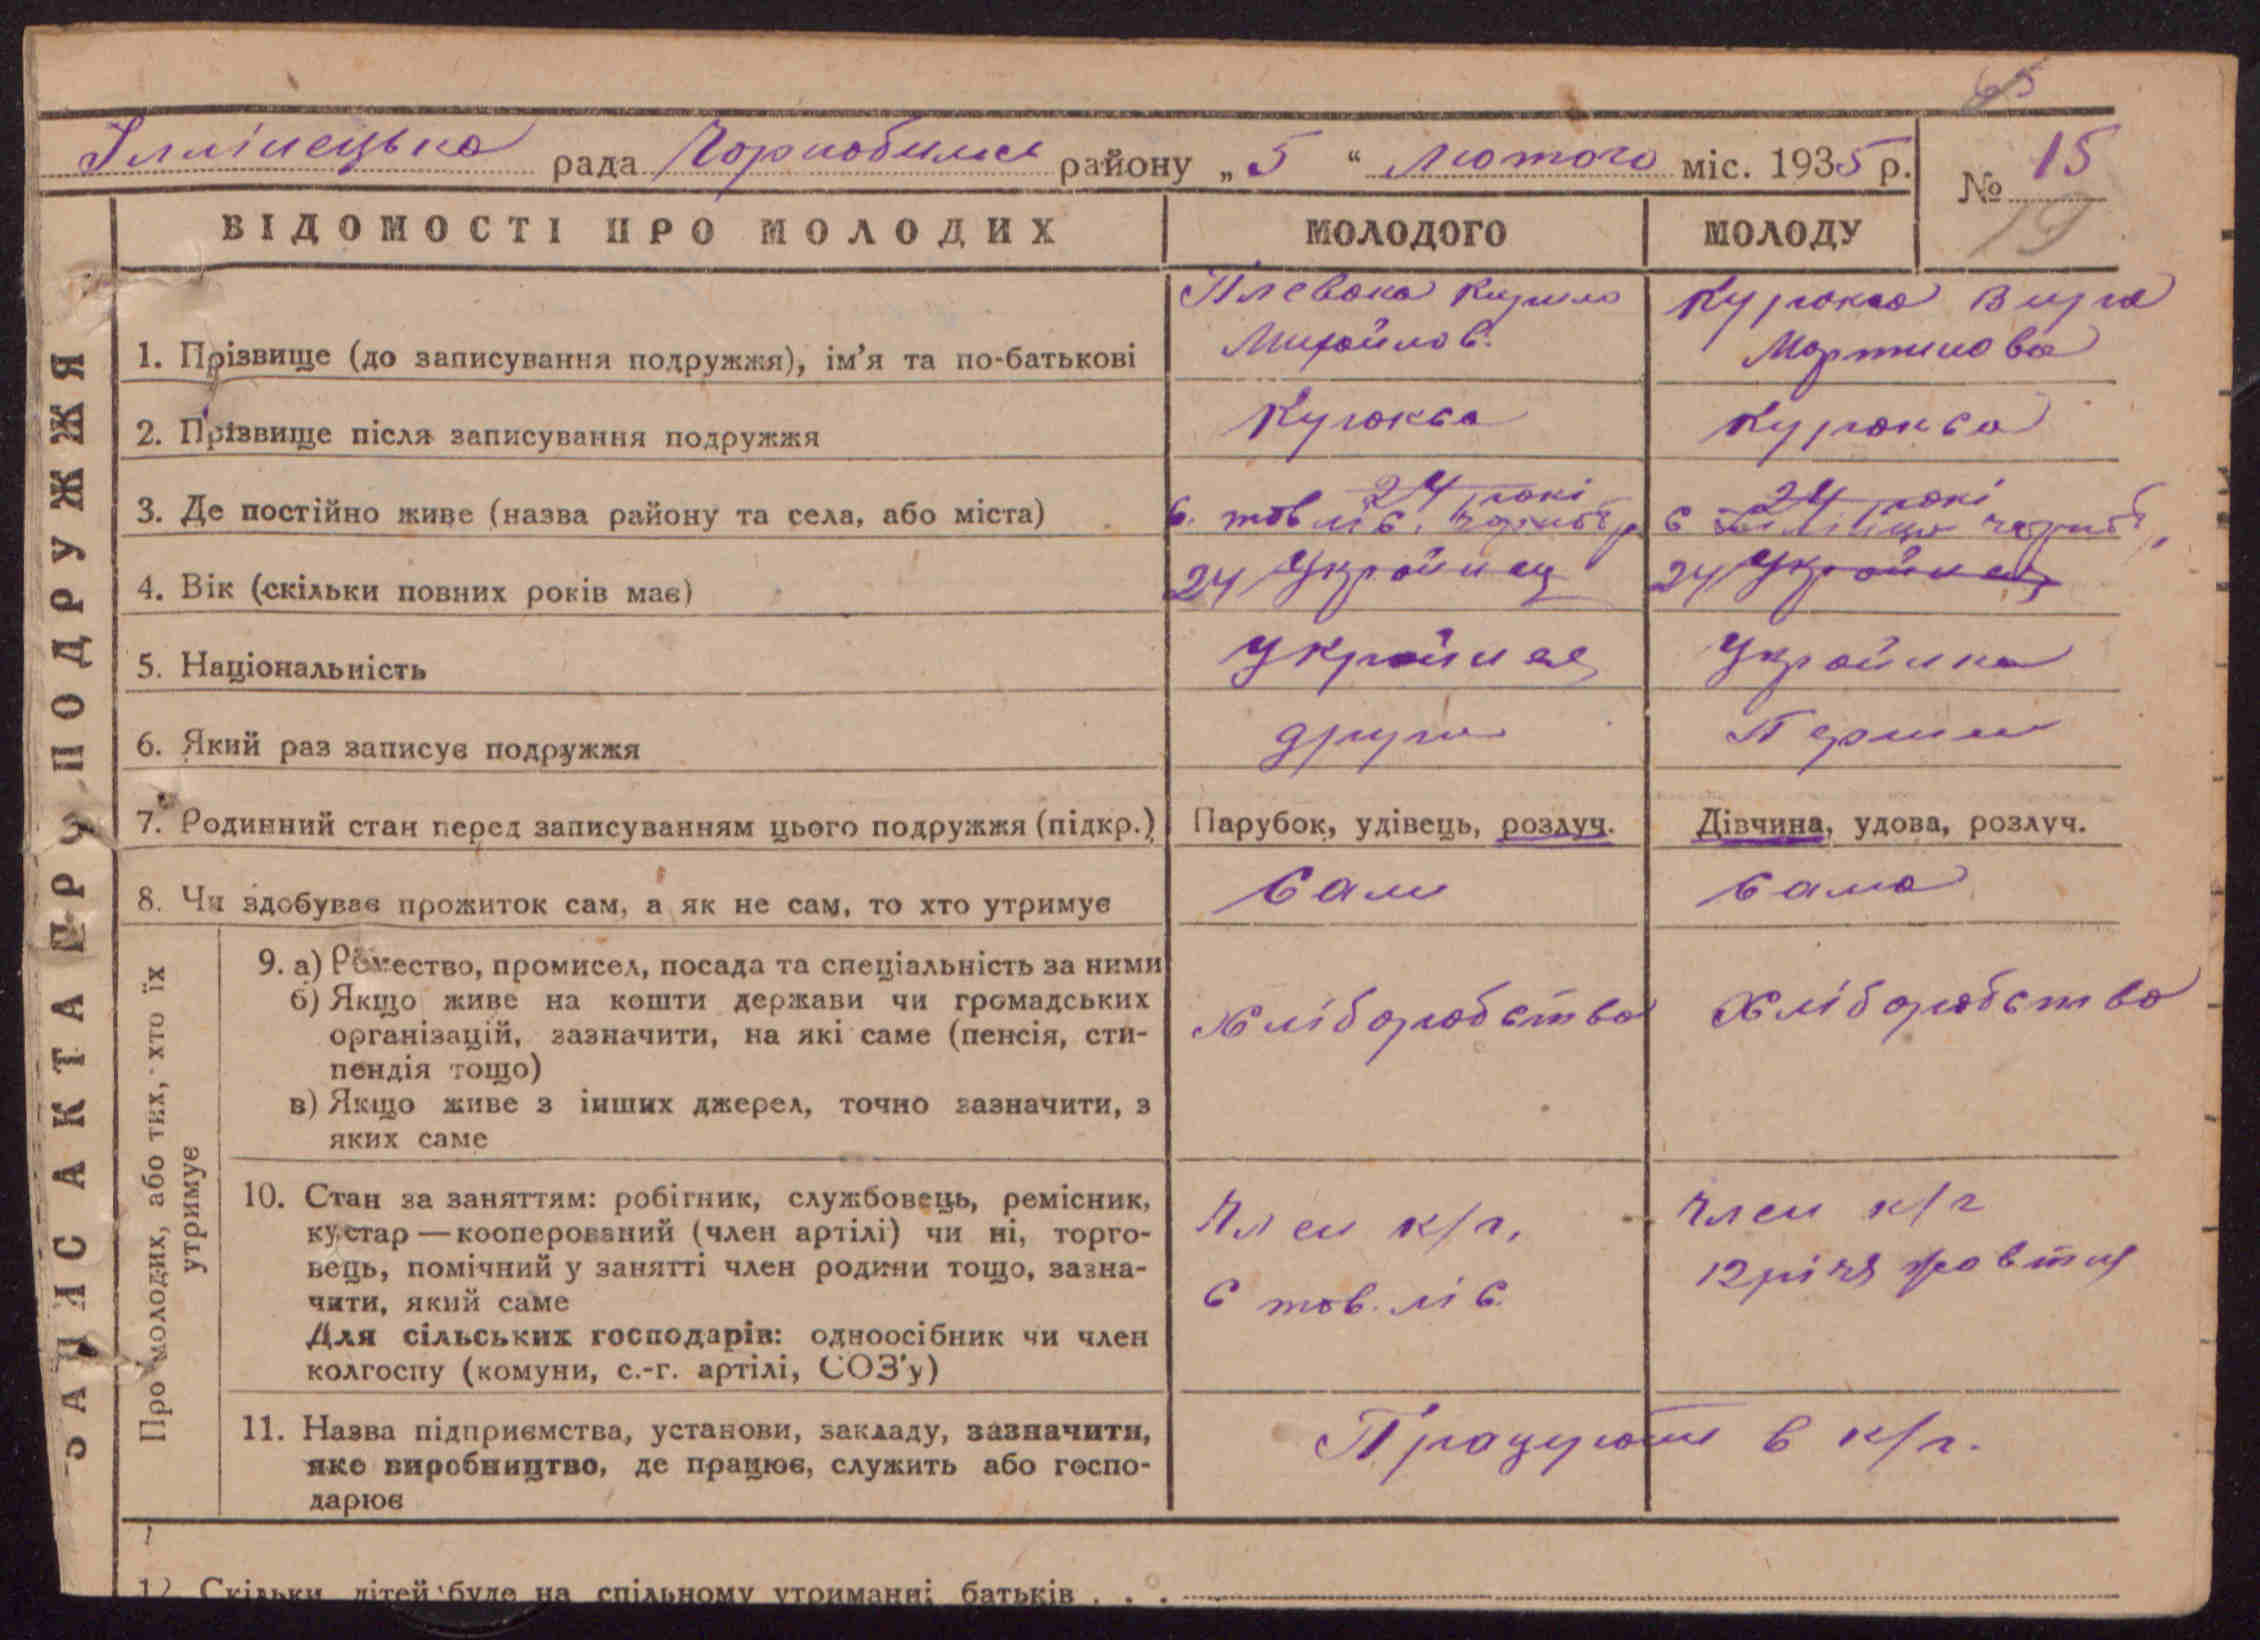 65
Іллінецька рада Чорнобильс району „5“ Лютого міс. 1935 р. № 15
19
ЗАПИС АКТА ПРО ПОДРУЖЖЯ
ВІДОМОСТІ ПРО МОЛОДИХ МОЛОДОГО МОЛОДУ
Плевака Кирило Михайлов.
Мартинова
1. Прізвище (до записування подружжя), ім’я та по-батькові
2. Прізвище після записування подружжя
3. Де постійно живе (назва району та села, або міста)
24 рокі 24 рокі
4. Вік (скільки повних років має) 24 Українец 24 Українец
5. Національність Українец Українка
6. Який раз записує подружжя други Перши
7. Родинний стан перед записуванням цього подружжя (підкр.) Парубок, удівець, розлуч. Дівчина, удова, розлуч.
8. Чи здобуває прожиток сам, а як не сам, то хто утримує сам сама
Про молодих, або тих, хто їх утримує
9. а) Ремество, промисел, посада та спеціальність за ними
б) Якщо живе на кошти держави чи громадських
організацій, зазначити, на які саме (пенсія, сти-
пендія тощо)
в) Якщо живе з інших джерел, точно зазначити, з
яких саме
Хліборобство Хліборобство
10. Стан за заняттям: робітник, службовець, ремісник,
кустар — кооперований (член артілі) чи ні, торго-
вець, помічний у занятті член родини тощо, зазна-
чити, який саме
Для сільських господарів: одноосібник чи член
колгоспу (комуни, с.-г. артілі, СОЗ’у)
Член к/г, Член к/г
с товліс. 12 річя жовтня
11. Назва підприємства, установи, закладу, зазначити,
яке виробництво, де працює, служить або госпо-
дарює
Працують в к/г.
12. Скільки дітей буде на спільному утриманні батьків . . .